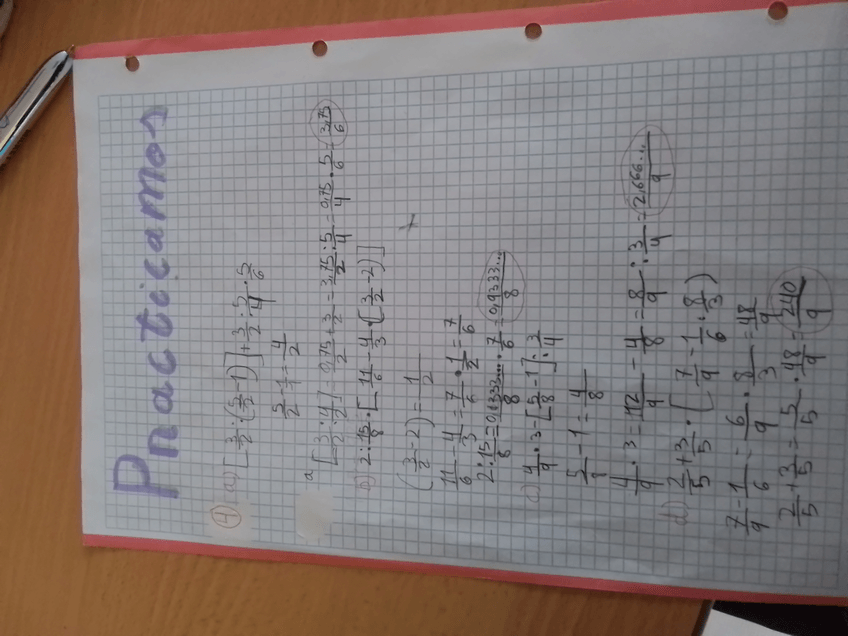 Practicamos
④ a) [3/2 : (5/2 - 1)] + 3/2 : 5/4 · 5/6
5/2 - 1/1 = 4/2
a [3/2 : 4/2] = 0,75/2 + 3/2 = 3,75/2 : 5/4 = 0,75/4 · 5/6 = 3,75/6
b) 2 : 15/8 · [11/6 - 4/3 · (3/2 - 2)]
(3/2 - 2) = 1/2
11/6 - 4/3 = 7/6 · 1/2 = 7/6
2 : 15/8 = 0,1333.../8 · 7/6 = 0,9333.../8
c) 4/9 · 3 - [5/8 - 1] : 3/4
5/8 - 1 = 4/8
4/9 · 3 = 12/9 - 4/8 = 8/9 : 3/4 = 2,666.../9
d) 2/5 + 3/5 · [7/9 - 1/6 · 8/3)
7/9 - 1/6 = 6/9 · 8/3 = 48/9
2/5 + 3/5 = 5/5 · 48/9 = 240/9